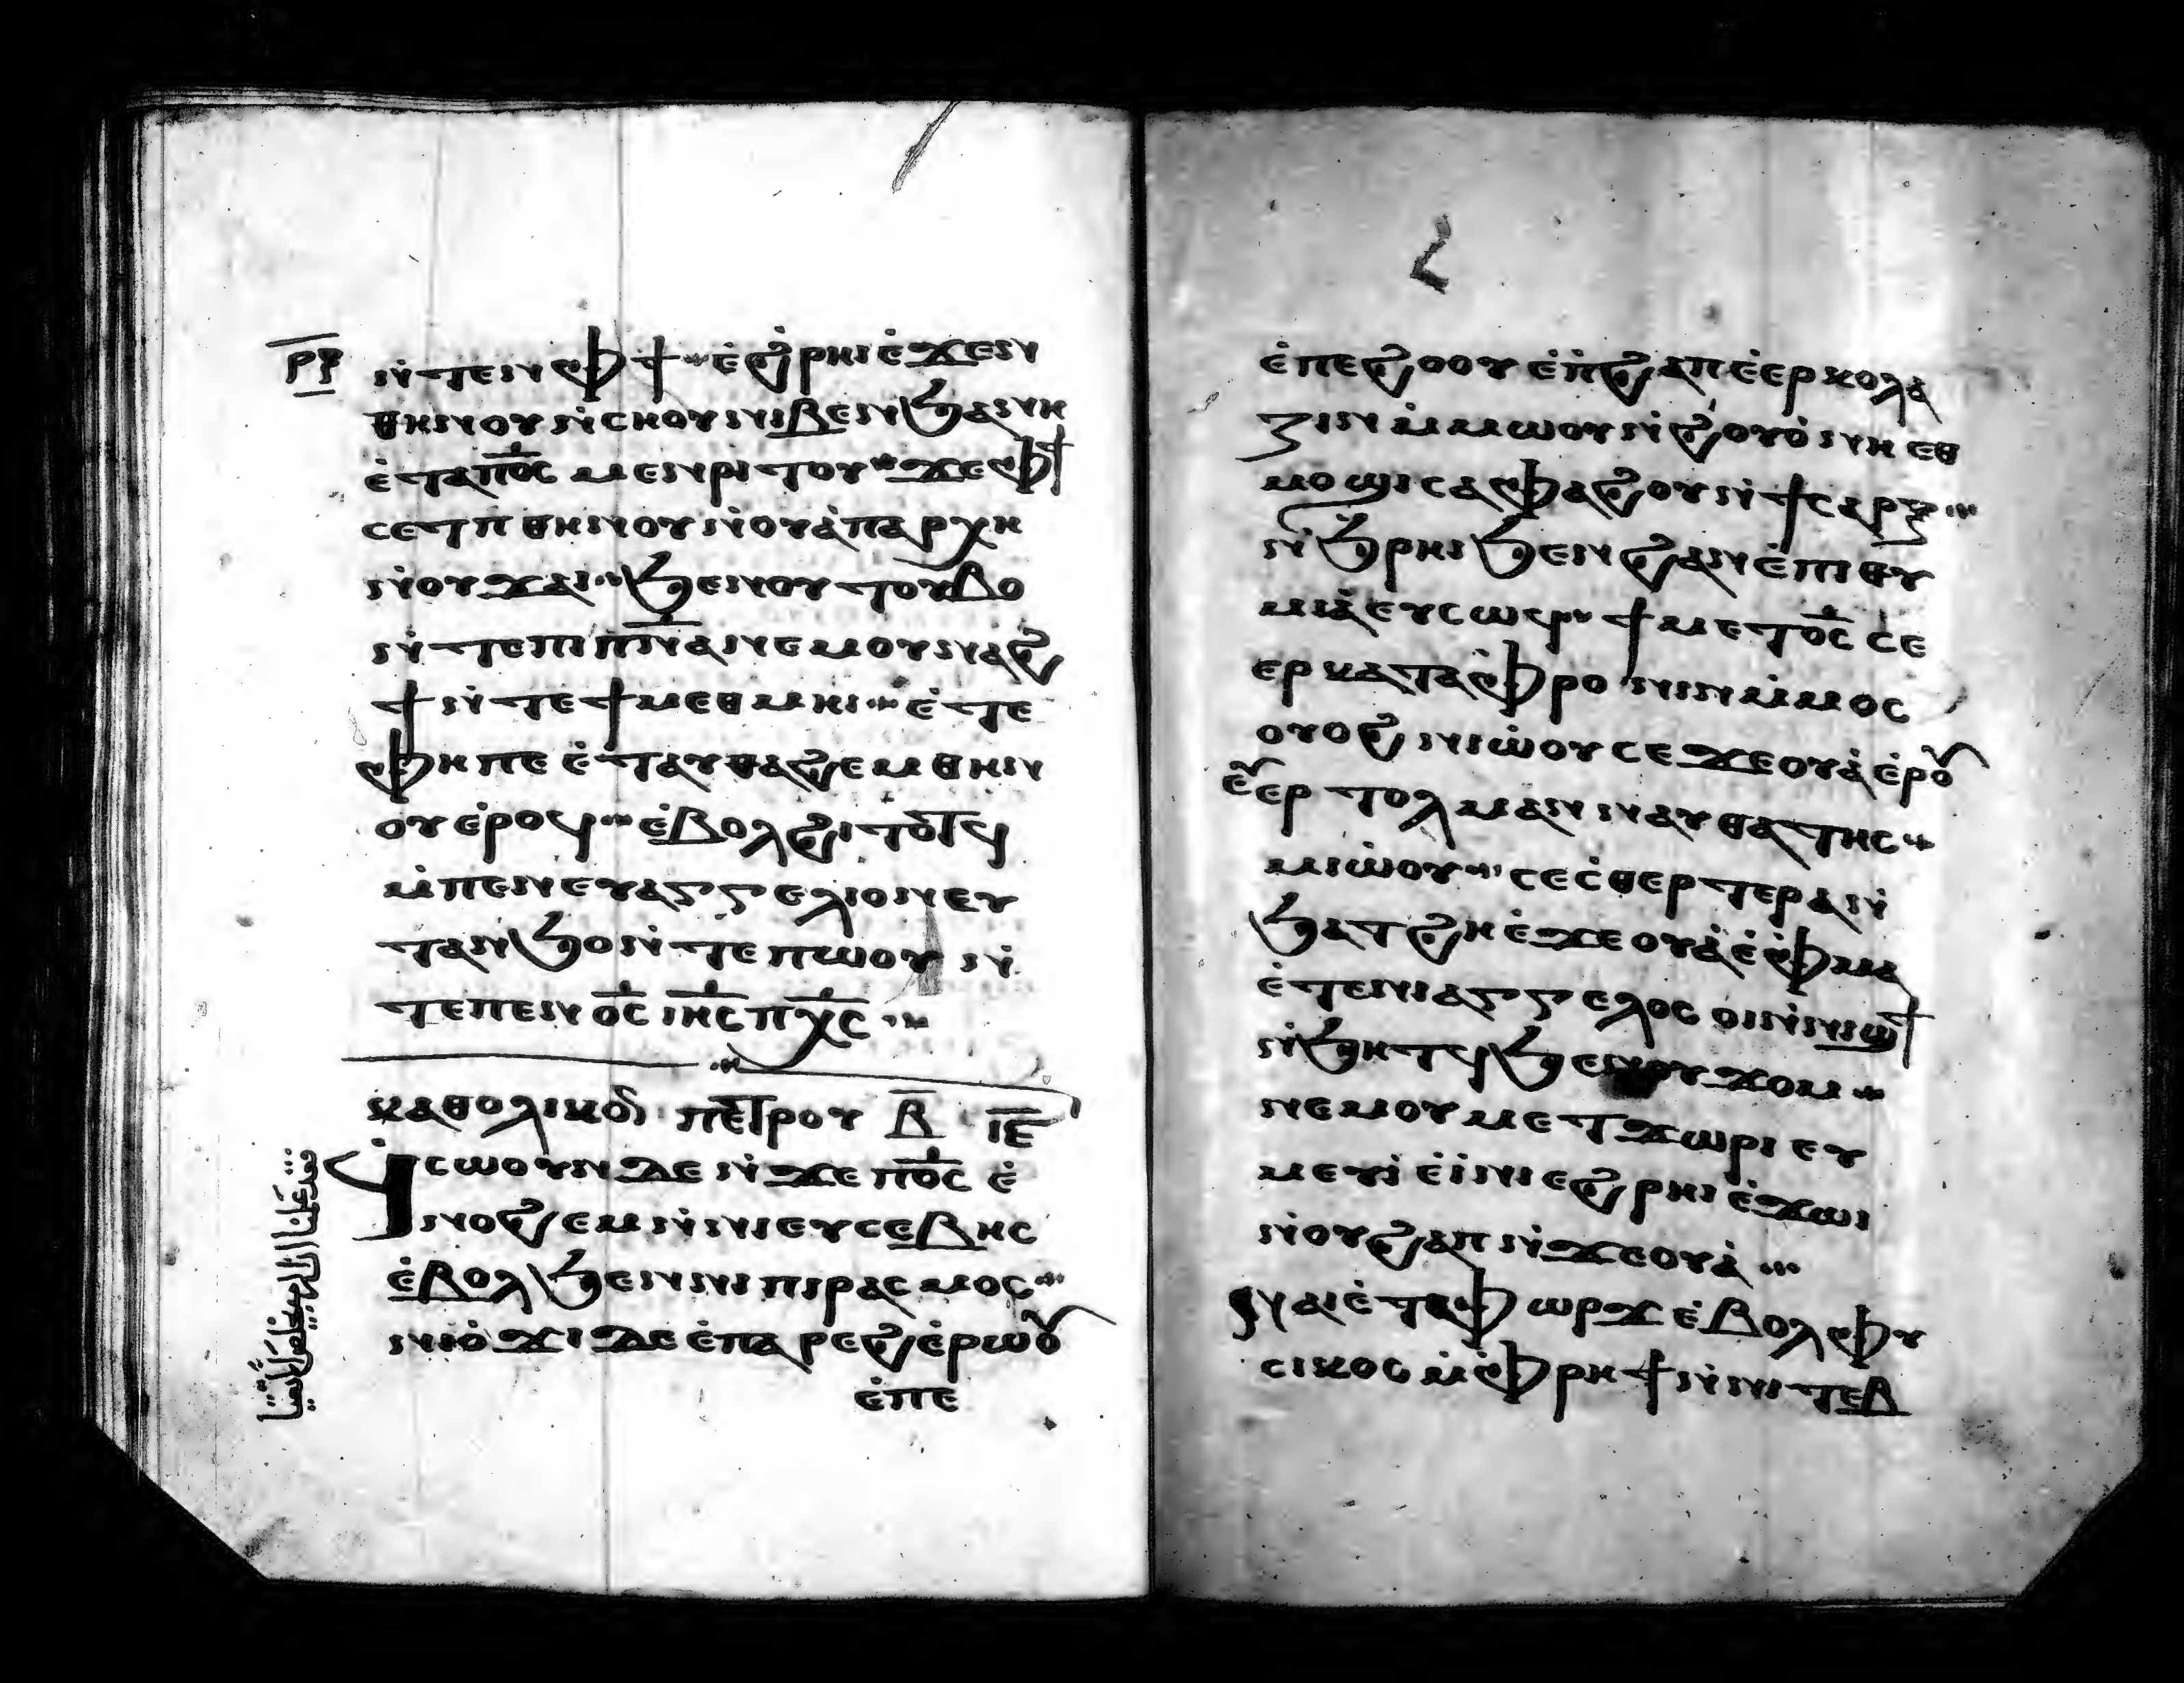 ⲣⲝ
ⲛ̇ⲧⲉⲛⲫϯ ⲉ̇ϩⲣⲏⲓ ⲉ̇ϫⲉⲛ
ⲑⲏⲛⲟⲩ ⲛ̇ⲥⲛⲟⲩ ⲛⲓⲃⲉⲛ ϧⲁⲛⲏ
ⲉ̇ⲧⲁⲡⲟ̅ⲥ̅ ⲙⲉⲛⲣⲓⲧⲟⲩ ϫⲉ ⲫϯ
ⲥⲉⲧⲡ ⲑⲏⲛⲟⲩ ⲛ̇ⲟⲩⲁ̇ⲡⲁⲣⲭⲏ
ⲛ̇ⲟⲩϫⲁⲓ ϧⲉⲛⲟⲩⲧⲟⲩⲃⲟ
ⲛ̇ⲧⲉⲡⲓⲡ̅ⲛ̅ⲁ̅ ⲛⲉⲙⲟⲩⲛⲁϩ
ϯ ⲛ̇ⲧⲉϯⲙⲉⲑⲙⲏⲓ ⲉ̇ⲧⲉ
ⲫⲏ ⲡⲉ ⲉ̇ⲧⲁⲩⲑⲁϩⲉⲙ ⲑⲏⲛ
ⲟⲩ ⲉ̇ⲣⲟϥ ⲉ̇ⲃⲟⲗ ϩⲓⲧⲟⲧϥ
ⲙ̇ⲡⲉⲛⲉⲩⲁⲅⲅⲉⲗⲓⲟⲛ ⲉⲩ
ⲧⲁⲛϧⲟ ⲛ̇ⲧⲉ ⲡⲱⲟⲩ ⲛ̇
ⲧⲉ ⲡⲉⲛⲟ̅ⲥ̅ ⲓⲏ̅ⲥ̅ ⲡⲭ̅ⲥ̅
ⲕⲁⲑⲟⲗⲓⲕⲟⲛ ⲡⲉⲧⲣⲟⲩ ⲃ̅ ⲓ̅ⲉ̅
ϥⲥⲱⲟⲩⲛ ⲇⲉ ⲛ̇ϫⲉ ⲡⲟ̅ⲥ̅ ⲉ̇
ⲛⲟϩⲉⲙ ⲛ̇ⲛⲓⲉⲩⲥⲉⲃⲏⲥ
ⲉ̇ⲃⲟⲗ ϧⲉⲛ ⲛⲓⲡⲓⲣⲁⲥⲙⲟⲥ
ⲛⲓⲟ̇ϫⲓ ⲇⲉ ⲉ̇ⲡⲁⲣⲉϩ ⲉ̇ⲣⲱⲟⲩ
ⲉ̇ⲡⲉ
ⲉ̇ⲡⲉϩⲟⲟⲩ ⲉ̇ⲡ̇ϩⲁⲡ ⲉ̇ⲉⲣⲕⲟⲗⲁ
ⲍⲓⲛ ⲙ̇ⲙⲱⲟⲩ ⲛ̇ϩⲟⲩⲟ̇ ⲛⲏ ⲉⲑ
ⲙⲟϣⲓ ⲥⲁⲫⲁϩⲟⲩ ⲛ̇ϯⲥⲁⲣⲝ
ⲛ̇ϧⲣⲏⲓ ϧⲉⲛ ϩⲁⲛⲉ̇ⲡⲓⲑⲩ
ⲙⲓⲁ̇ ⲉⲩⲥⲱϥ ϯⲙⲉⲧⲟ̅ⲥ̅ ⲥⲉ
ⲉⲣⲕⲁⲧⲁⲫ̇ⲣⲟⲛⲓⲛ ⲙ̇ⲙⲟⲥ
ⲟⲩⲟϩ ⲛⲓⲱ̇ⲟⲩ ⲥⲉϫⲉⲟⲩⲁ̇ ⲉ̇ⲣⲟⲩ
ⲉⲩⲉⲣⲧⲟⲗⲙⲁⲛ ⲛⲁⲩⲑⲁⲧⲏⲥ
ⲙⲓⲱ̇ⲟⲩ ⲥⲉⲥ̇ⲑⲉⲣⲧⲉⲣ ⲁⲛ
ϧⲁⲧϩⲏ ⲉ̇ϫⲉⲟⲩⲁ̇ ⲉ̇ⲫ̇ⲙⲁ
ⲉ̇ⲧⲉⲛⲓⲁⲅⲅⲉⲗⲟⲥ ⲟⲓ ⲛ̇ⲛⲓϣϯ
ⲛ̇ϧⲏⲧϥ ϧⲉⲛⲟⲩϫⲟⲙ
ⲛⲉⲙⲟⲩⲙⲉⲧϫⲱⲣⲓ ⲉⲩ
ⲙⲉⲩⲓ̇ ⲉ̇ⲓ̇ⲛⲓ ⲉϩⲣⲏⲓ ⲉ̇ϫⲱⲓ
ⲛ̇ⲟⲩϩⲁⲡ ⲛ̇ϫⲉⲟⲩⲁ̇
ⲛⲁⲓ ⲉ̇ⲧⲁⲫⲱⲣϫ ⲉ̇ⲃⲟⲗ ⲫ̇ⲩ
ⲥⲓⲕⲟⲥ ⲙ̇ⲫ̇ⲣⲏϯ ⲛ̇ⲛⲓⲧⲉⲃ